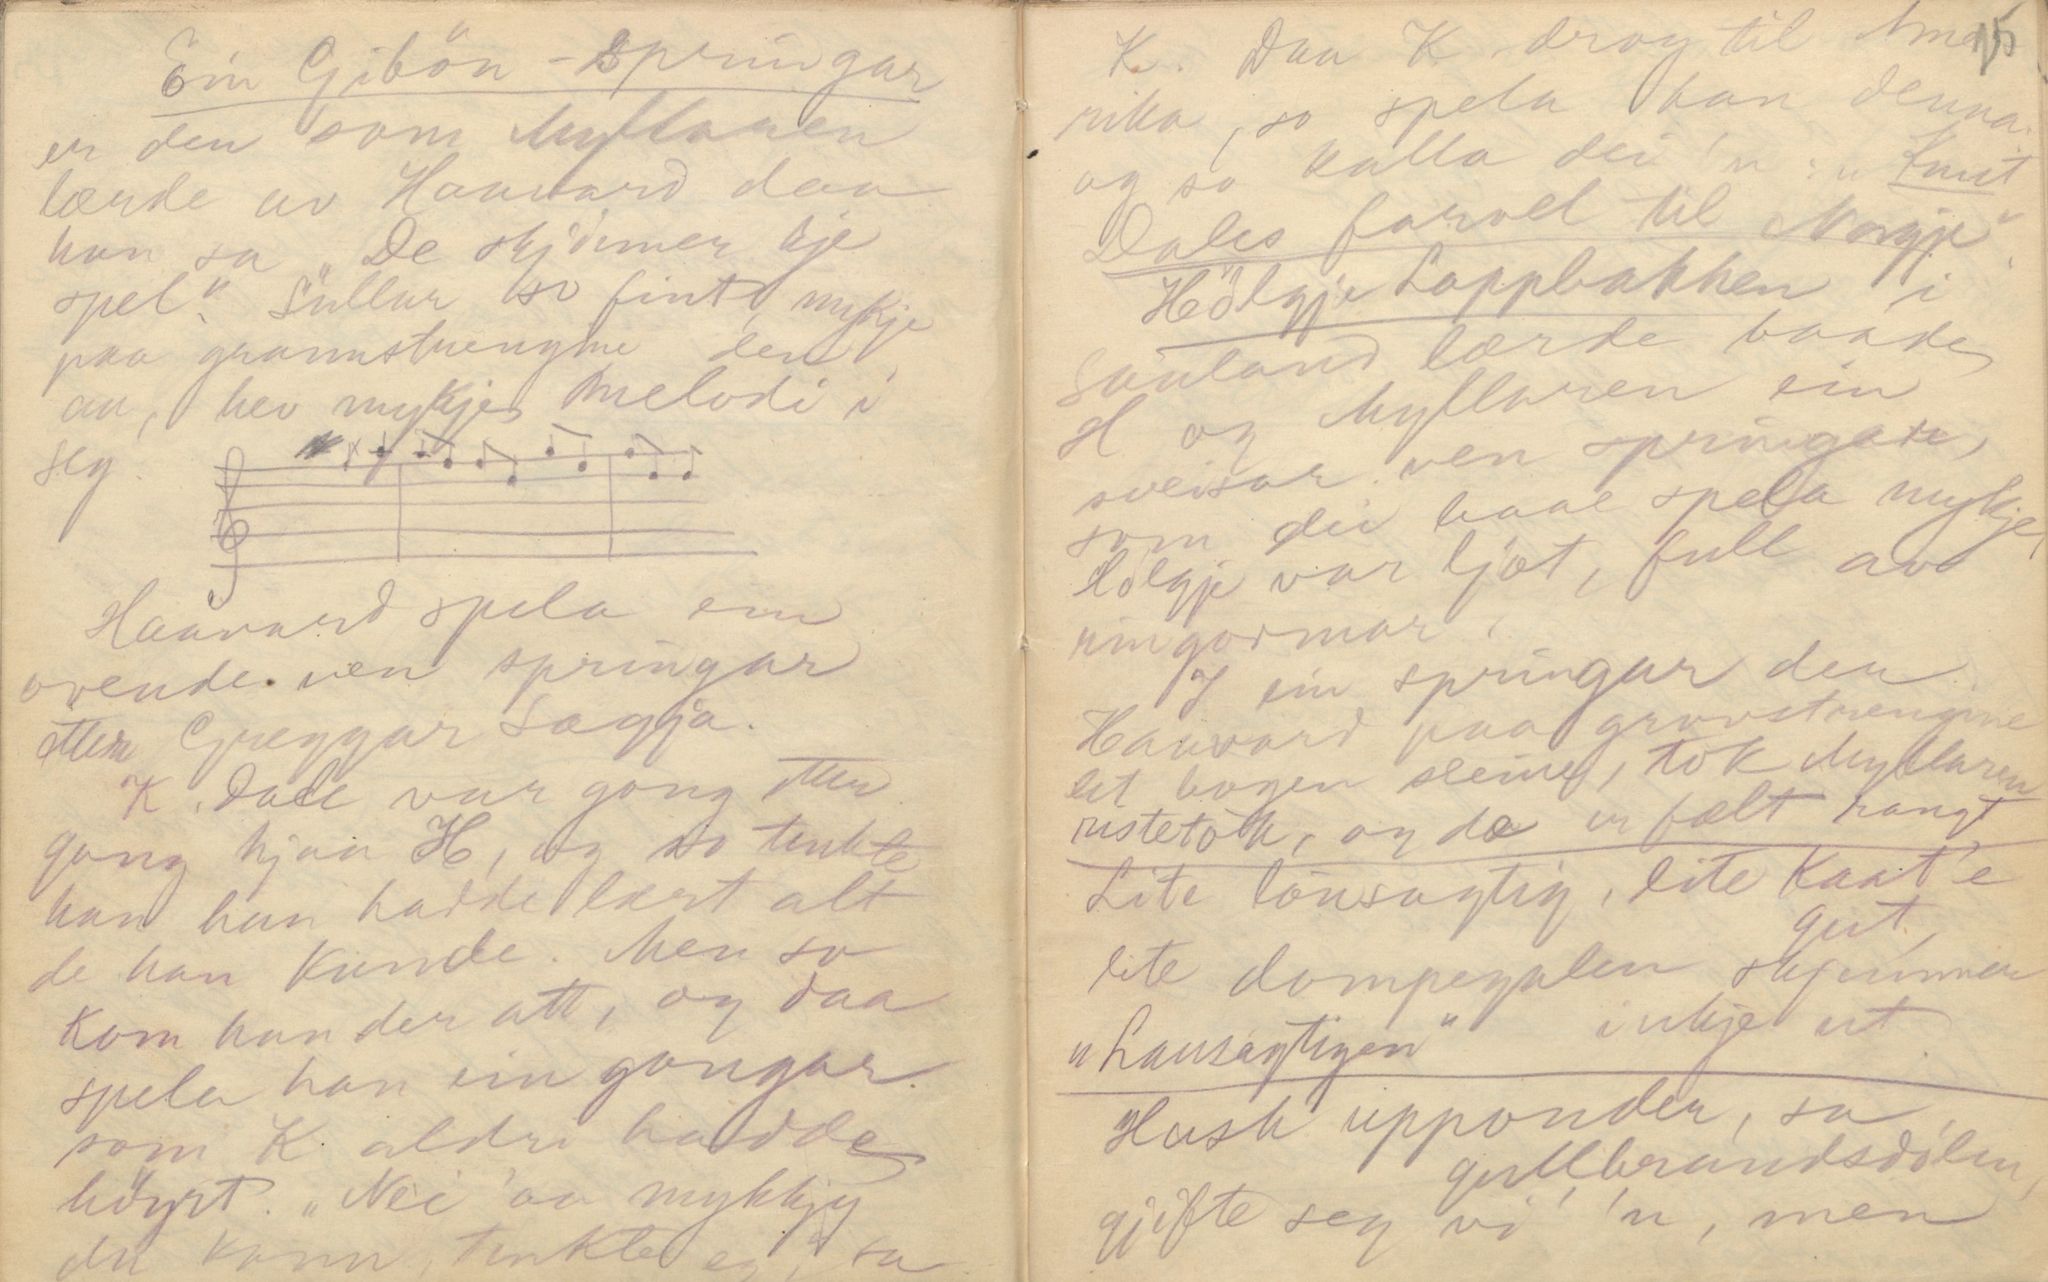 Ein Gibön-Springar
er den som Myllaren
lærde av Haavard daa
han sa „De skjönner kje
spel“. Sullar so fint, mykje
paa grannstrengine den
au, hev mykje melodi i
seg.
Haavard spela ein
ovende ven springar
etter Greggar Sægja.
K. Dale var gong etter
gong hjaa H, og so tenkte
han han hadde lært alt
de han kunde. Men so
kom han der att, og daa
spela han ein gangar
som K aldri hadde
höyrt. „Nei aa mykkjy
du kann, tenkte eg, sa
15
K. Daa K drog til Ame
rika, so spela han denna
og so kalla dei 'n : „Knut
Dales farvel til Norgje“.
Hölgje Loppbakken i
Sauland lærde baade
H og Myllaren ein
sveisar ven springar,
som dei baae spela mykje,
Hölgje var ljot, full av
ringormar.
I ein springar der
Haavard paa grovstrengine
let bogen sleine, tok Myllaren
ristetok, og dæ er fælt rangt,
Lite lausagtig, lite kaat'e
gut,
lite dompegalen skjemmer
„Lausagtigen“ inkje ut.
Hush upponder, sa
gullbrandsdölen,
gjifte seg vi 'n, men